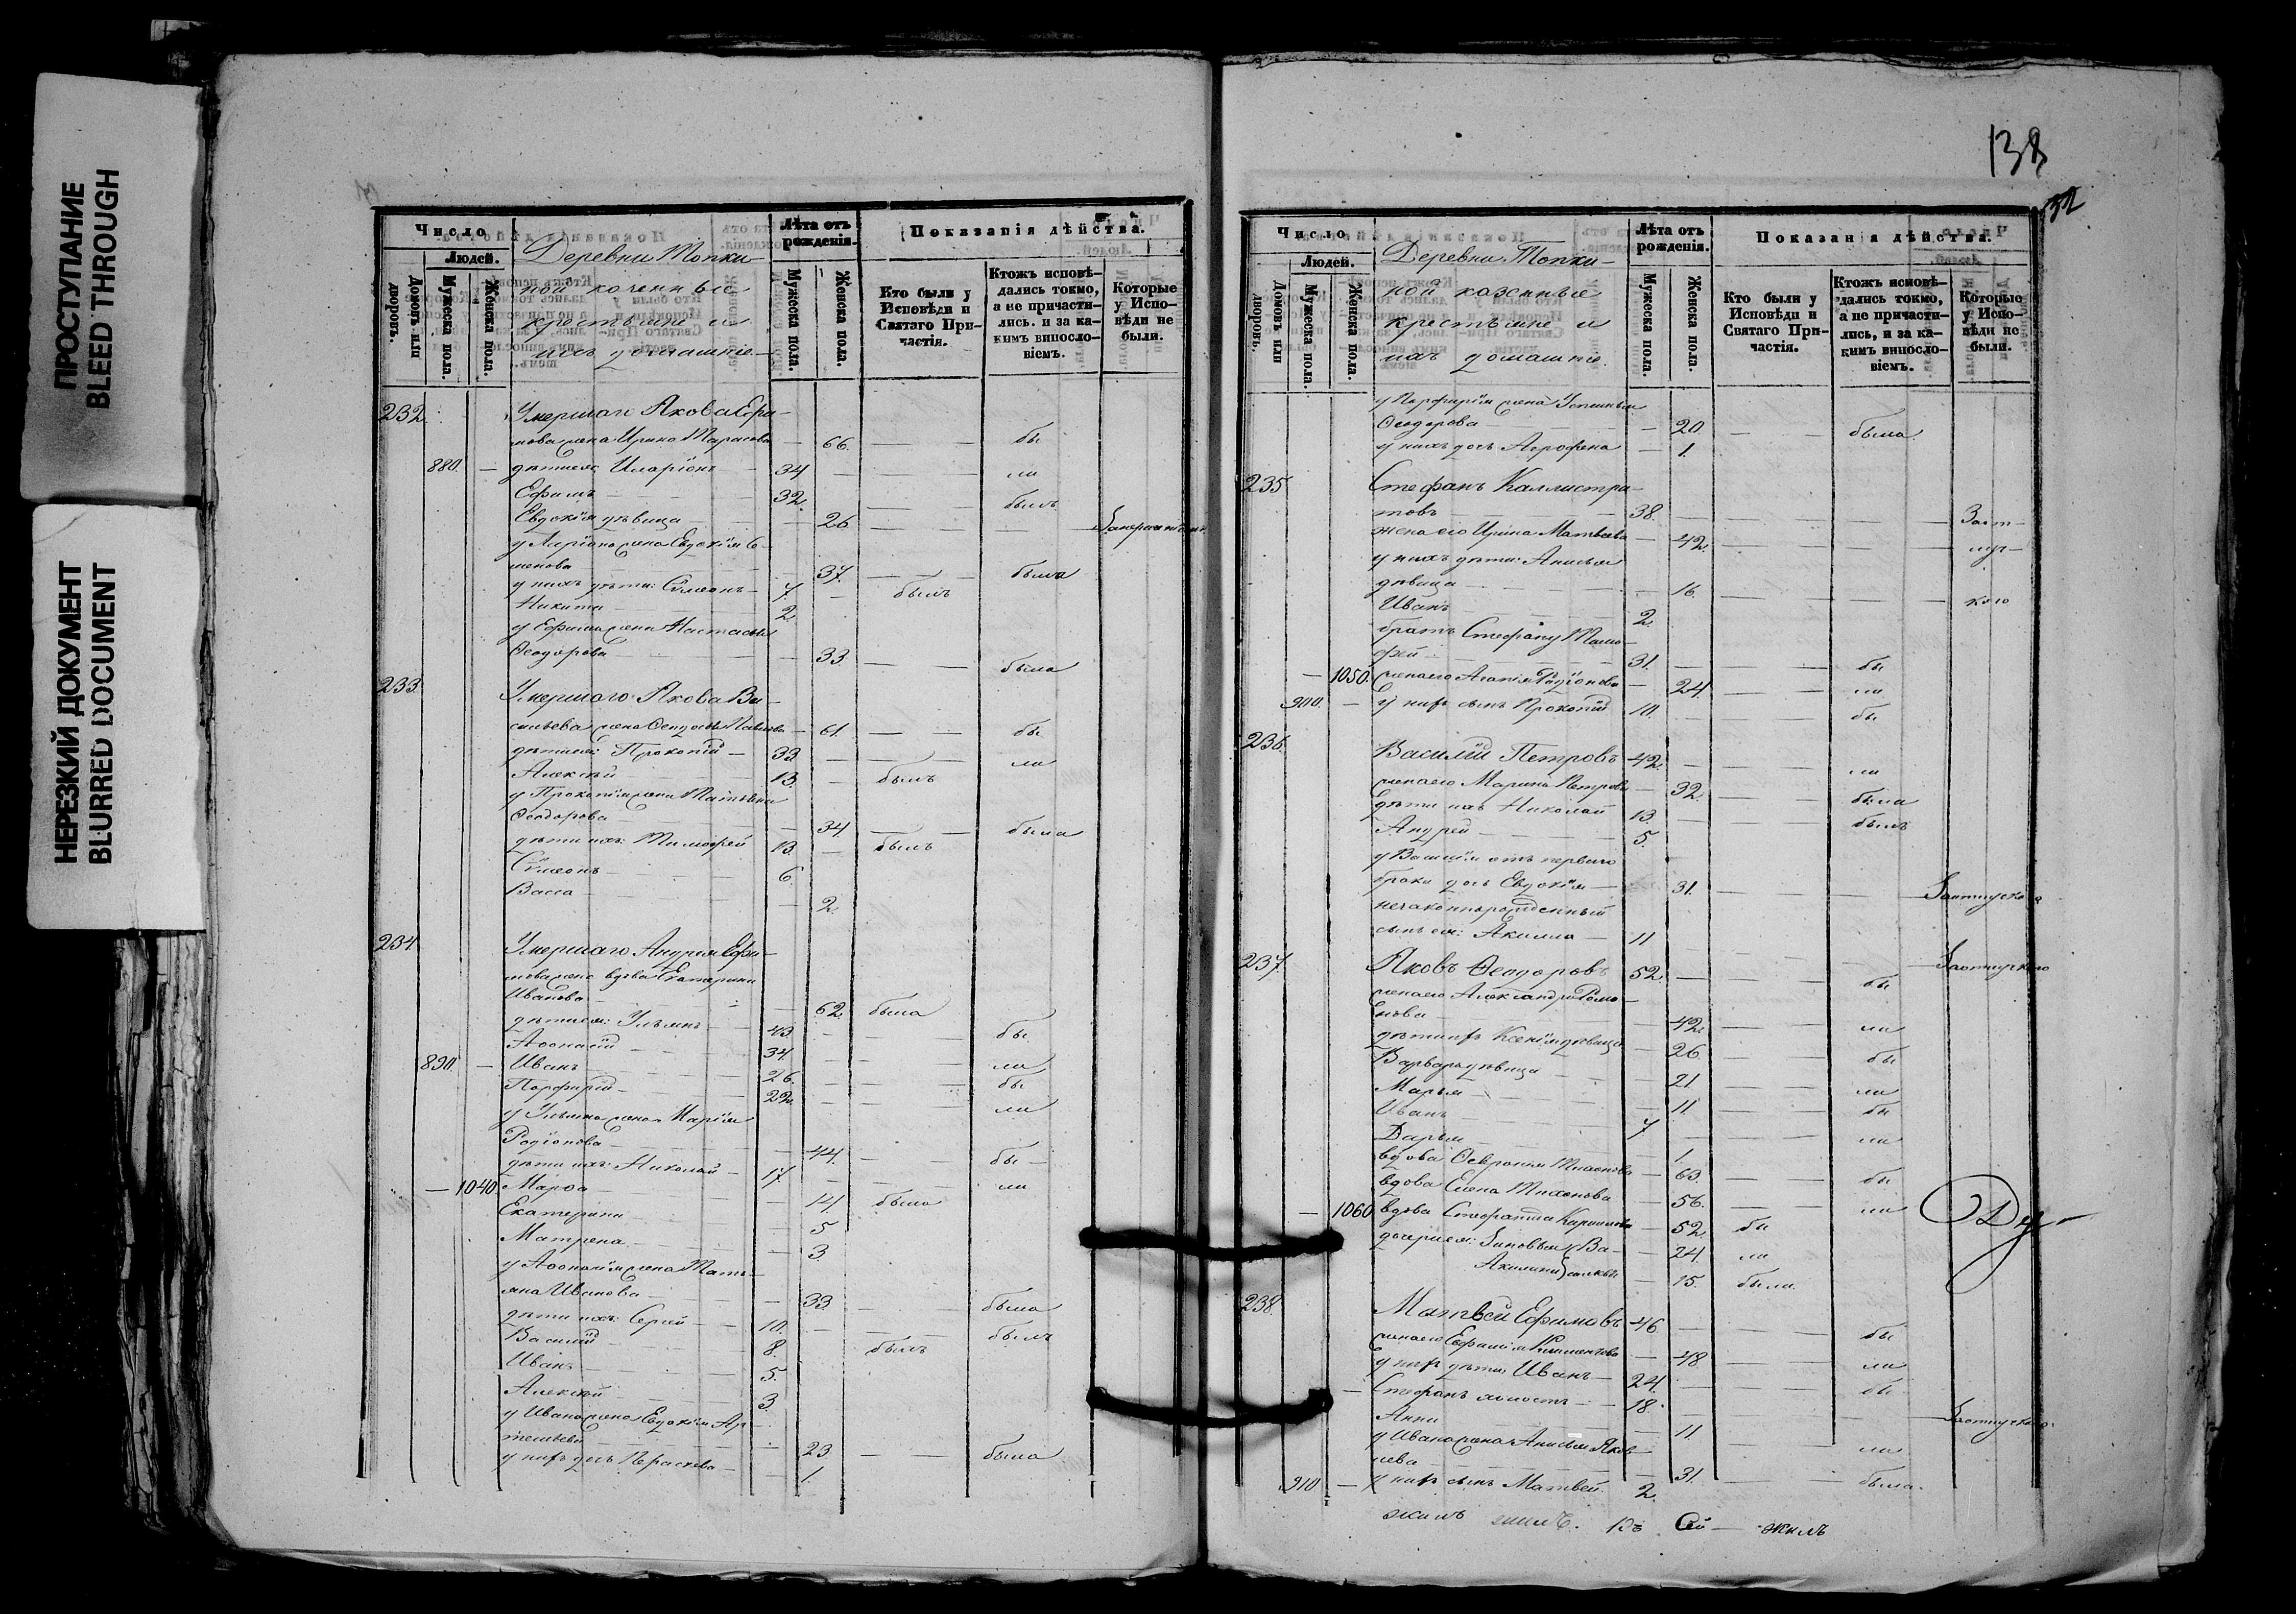 ПРОСТУПАНИЕ
BLEED THROUGH
НЕРЕЗКИЙ ДОКУМЕНТ
BLURRED DOCUMENT
Число
Людей.
Домовъ или дворовъ.
Мужеска пола.
Женска пола.
Деревни Топки-
ной казенные
крестьяне и
ихъ домашніе.
Лѣта отъ рожденія.
Мужеска пола.
Женска пола.
Показанія дѣйства.
Кто были у Исповѣди и Святаго Причастія.
Ктожъ исповѣ-
дались токмо,
а не причасти-
лись. и за ка-
кимъ винослο-
віемъ.
Которые
у Испо-
вѣди не
были.
232. Умершаго Якова Ефи-
мова жена Ирина Тарасова — 66. — — бы
880. — дѣти ея: Иларіонъ — 34 — — ли
Ефимъ — 32. — — былъ
Евдокія дѣвица — 26 — —
у Ларіона жена Евдокія Се-
менова — 37. — — была
у нихъ дѣти: Симеонъ — 7. — былъ
Никита — 2
у Ефима жена Настасья
Ѳеодорова — 33 — — была
233. Умершаго Якова Ва-
сильева жена Ѳедосья Павлова — 61. — — бы
дѣти ея: Прокопій — 33. — — ли
Алексѣй — 13. — былъ
у Прокопія жена Татьяна
Ѳеодорова — 34. — — была
дѣти ихъ: Тимофей 13. — былъ
Симеонъ — 6.
Васса — 2.
234 Умершаго Андрея Ефи-
мова жена вдова Екатерина
Иванова — 62 была
дѣти ея: Ульянъ — 43. — — бы
Аѳонасій — 34. — — ли
890. — Иванъ — 26. — — бы
Порфирій — 22. — — ли
у Ульяна жена Марія
Родіонова — 44. — — бы —
дѣти ихъ: Николай — 17. — — ли
— 1040 Марѳа — 14. была
Екатерина — 5
Матрена — 3.
у Аѳонасія жена Тать-
яна Иванова — 33 — — была
дѣти ихъ: Сергѣй — 10. — — былъ
Василій — 8. былъ
Иванъ — 5.
Алексѣй — 3.
у Ивана жена Евдокія Ар-
темьева — 23. — — была
у нихъ дочь Параскева — 1.
138
132
Число
Людей.
Домовъ или дворовъ.
Мужеска пола.
Женска пола.
Деревни Топки-
ной казенные
крестьяне и
ихъ домашніе.
Лѣта отъ рожденія.
Мужеска пола.
Женска пола.
Показанія дѣйства.
Кто были у Исповѣди и Святаго Причастія.
Ктожъ исповѣ-
дались токмо,
а не причасти-
лись, и за ка-
кимъ винослο-
віемъ.
Которые
у Испо-
вѣди не
были.
у Порфирія жена Устинья
Ѳеодорова — 20. — — была
у нихъ дочь Агрофена — 1.
235 Стефанъ Каллистра-
товъ — 38. — — — Заот-
жена его Ирина Матвѣева — 42. — — — луч-
у нихъ дѣти: Анисья
дѣвица — 16. — — — кою
Иванъ — 2.
братъ Стефану Тимо-
фей — 31. — — бы
— 1050. жена его Агапія Родіонова — 24. — — ли
900. — у нихъ сынъ Прокопій 10. — — бы
236. Василій Петровъ 42. — — ли
жена его Марина Петрова — 32. — — была
дѣти ихъ Николай 13. — — былъ
Андрей — 5.
у Василія отъ перваго
брака дочь Евдокія — 31. — — —
незаконнорожденный
сынъ ея: Акилла — 11 — — —
237. Яковъ Ѳеодоровъ 52. — — бы
жена его Александра Рома-
нова — 42. — — ли
дѣти ихъ Ксенія дѣвица — 26 — — бы
Варвара дѣвица — 21 — — ли
Марья — 11 — — бы
Иванъ — 7 — — ли
Дарья — 1.
вдова Ѳевронія Тихонова — 63. — — бы
вдова Елена Тихонова — 56. — — ли
— 1060 вдова Стефанида Кирилова — 52. бы
дочери ея: Зиновья — 24. ли
Акилина — 15. была.
238. Матвѣй Ефимовъ 46 — — бы
жена его Евфимія Климентова — 48 — — ли
у нихъ дѣти: Иванъ — 24. — — бы
Стефанъ холостъ — 18. — — —
Анна — 11. — — ли
у Ивана жена Анисья Яков-
лева — 31. — — была.
910. — у нихъ сынъ Матвей 2.